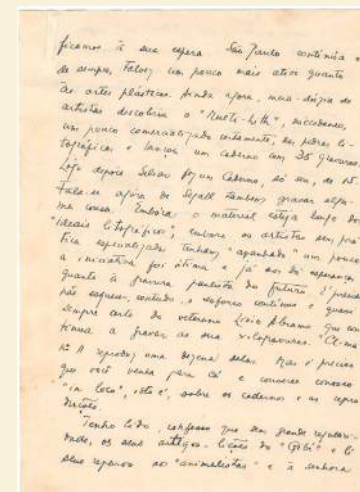 ficamos à sua espera. São Paulo continua o
de sempre. Talvez um pouco mais ativo quanto
às artes plásticas. Ainda agora, meia-dúzia de
artistas descobriu o "Multi-Lith", sucedâneo,
um pouco comercializado certamente, das pedras li-
tográficas e lançou um caderno com 35 gravuras.
Logo depois fez um caderno, só seu, de 15.
Fala-se agora de Segall também gravar algu-
ma cousa. Embora o material esteja longe dos
"ideais litográficos", embora os artistas sem prá-
tica especializada tenham "apanhado" um pouco
a iniciativa foi ótima e já nos dá esperanças
quanto à gravura paulista do futuro. É preciso
não esquecer, contudo, o esforço contínuo e quasi
sempre certo do veterano Livio Abramo que con-
tinua a gravar as sua xilogravuras. "Clima
Nº 11 reproduz uma dezena delas. Mas é preciso
que você venha para cá e converse conosco
"in loco", isto é, sobre os cadernos e as repro
duções.
Tenho lido, confesso que sem grande regulari-
dade, os seus artigos-lições do "Globo" e li
seus reparos aos "animalistas" e à senhora